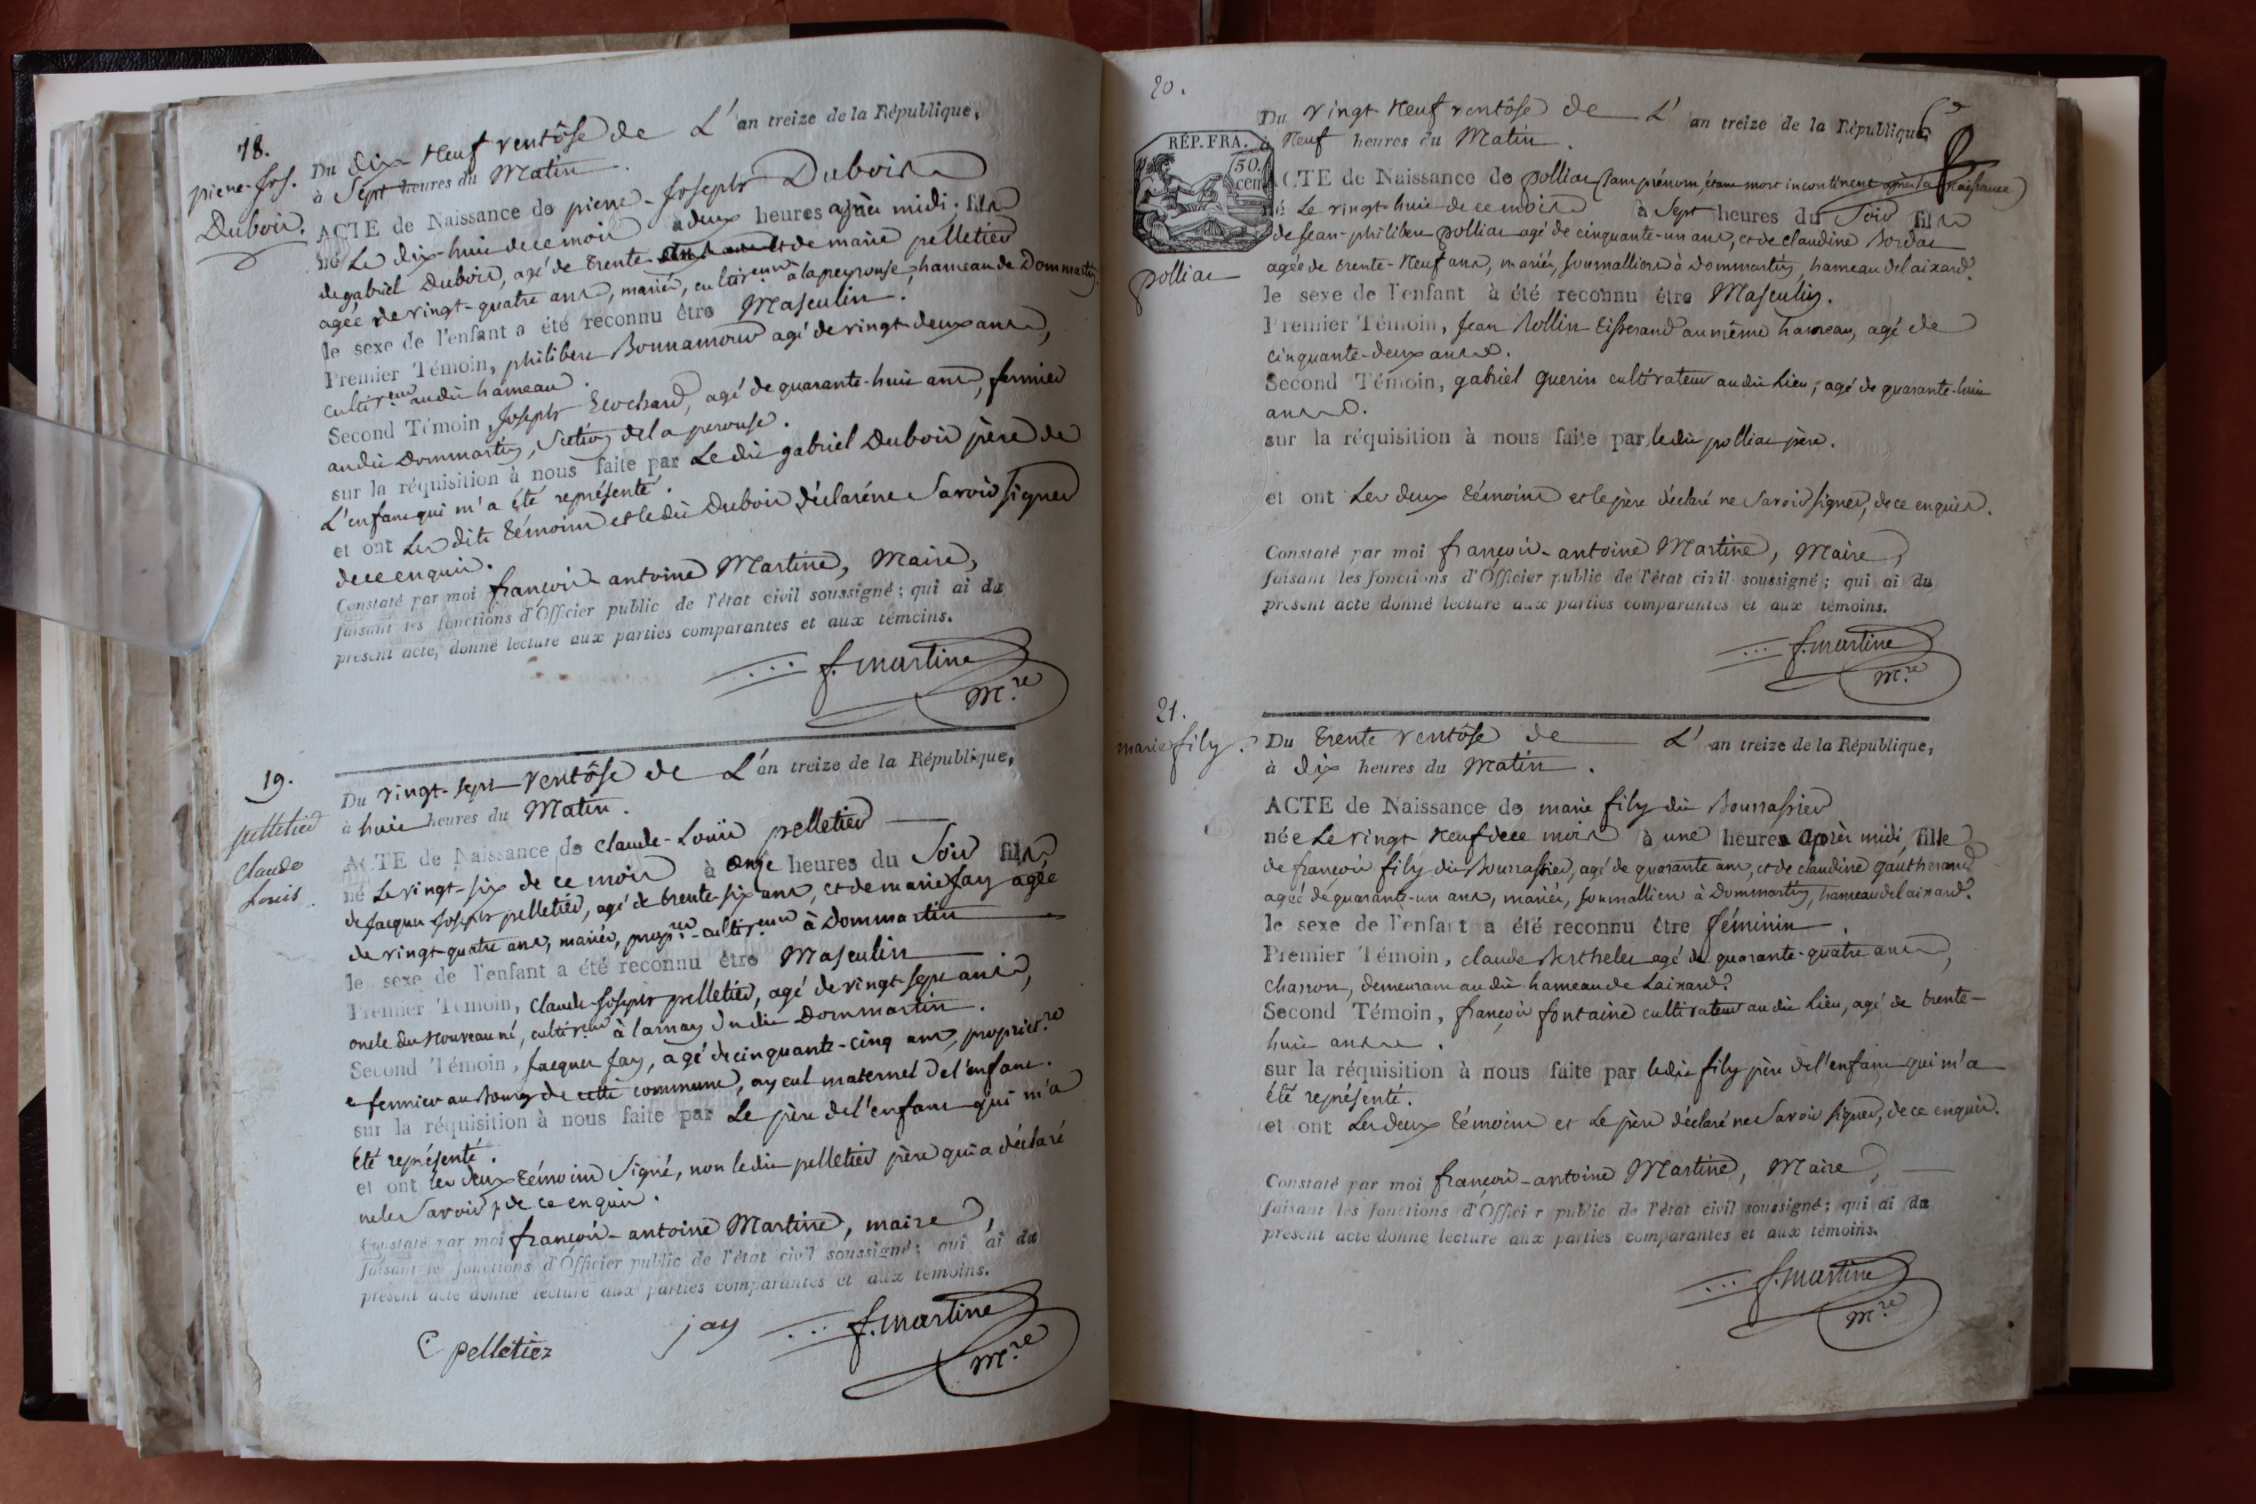 18.
pierre-Jos.
Dubois.
Du Dix-Neuf ventôse de L'an treize de la République,
à Sept heures du Matin.
ACTE de Naissance de pierre-Joseph Dubois
né Le dix-huit de ce mois à deux heures après midi, fils
de gabriel Dubois, agé de trente ans et de marie pelletier
agée de vingt-quatre ans, mariés, cultiv.eurs à la peyrouse, hameau de Dommartin,
le sexe de l'enfant a été reconnu être Masculin.
Premier Témoin, philibert Bonnamour agé de vingt-deux ans,
cultiv.eur audit hameau.
Second Témoin, Joseph Ecochard, agé de quarante-huit ans, fermier
audit Dommartin, Section de la perouse.
sur la réquisition à nous faite par Le dit gabriel Dubois père de
L'enfant qui m'a été représenté.
et ont Les dits témoins et le dit Dubois déclaré ne Savoir signer
de ce enquis.
Constaté par moi françois-antoine Martine, Maire,
faisant les fonctions d'Officier public de l'état civil soussigné; qui ai du
présent acte, donné lecture aux parties comparantes et aux témoins.
f. martine
M.re
19.
pelletier
Claude
Louis.
Du vingt-sept ventôse de L'an treize de la République,
à huit heures du Matin.
ACTE de Naissance de Claude-Louis pelletier
né Le vingt-six de ce mois à onze heures du Soir fils
de Jacques Joseph pelletier, agé de trente-six ans, et de marie Jay agée
de vingt-quatre ans, mariés, propr.res-cultiv.eurs à Dommartin
le sexe de l'enfant a été reconnu être Masculin
Premier Témoin, Claude-Joseph pelletier, agé de vingt-sept ans,
oncle du Nouveau né, cultiv.eur à larnay dudit Dommartin.
Second Témoin, Jacques Jay, agé de cinquante-cinq ans, propriet.re
& fermier au Bourg de cette commune, ayeul maternel de l'enfant.
sur la réquisition à nous faite par Le père de l'enfant qui m'a
été représenté.
et ont les deux témoins signé, non le dit pelletier père qui a déclaré
ne le Savoir, de ce enquis.
Constaté par moi françois-antoine Martine, maire,
faisant les fonctions d'Officier public de l'état civil soussigné; qui ai du
présent acte donné lecture aux parties comparantes et aux témoins.
C pelletiez jay f. martine
M.re
20.
RÉP. FRA.
50.
cen
polliat
Du vingt-Neuf ventôse de L'an treize de la République,
à Neuf heures du Matin.
ACTE de Naissance de polliat (sans prénom, étant mort incontinent après la Naissance)
né Le vingt-huit de ce mois à Sept heures du Soir fils
de Jean-philibert polliat agé de cinquante-un ans, et de claudine Bordat
agée de trente-Neuf ans, mariés, Journalliers à Dommartin, hameau de laixard.
le sexe de l'enfant à été reconnu être Masculin.
Premier Témoin, Jean Rollin tisserand au même hameau, agé de
cinquante-deux ans.
Second Témoin, gabriel guerin cultivateur audit Lieu, agé de quarante-huit
ans.
sur la réquisition à nous faite par, ledit polliat père.
et ont Les deux témoins et le père déclaré ne Savoir Signer, de ce enquis.
Constaté par moi françois-antoine Martine, Maire,
faisant les fonctions d'Officier public de l'état civil soussigné; qui ai du
présent acte donné lecture aux parties comparantes et aux témoins.
f. martine
M.re
21.
marie fily.
Du trente ventôse de L'an treize de la République,
à dix heures du Matin.
ACTE de Naissance de marie fily dit Bourrassier
née Le vingt-Neuf de ce mois à une heures après midi, fille
de françois fily dit Bourrassier, agé de quarante ans, et de claudine gautherand
agée de quarante-un ans, mariés, Journalliers à Dommartin, hameau de laixard.
le sexe de l'enfant a été reconnu être féminin.
Premier Témoin, claude Berthelet agé de quarante-quatre ans,
charron, demeurant audit hameau de Laixard.
Second Témoin, françois fontaine cultivateur audit Lieu, agé de trente-
huit ans.
sur la réquisition à nous faite par ledit fily père de l'enfant qui m'a
été représenté.
et ont Les deux témoins et Le père déclaré ne Savoir signer, de ce enquis.
Constaté par moi françois-antoine Martine, Maire,
faisant les fonctions d'Officier public de l'état civil soussigné; qui ai du
présent acte donné lecture aux parties comparantes et aux témoins.
f. martine
M.re